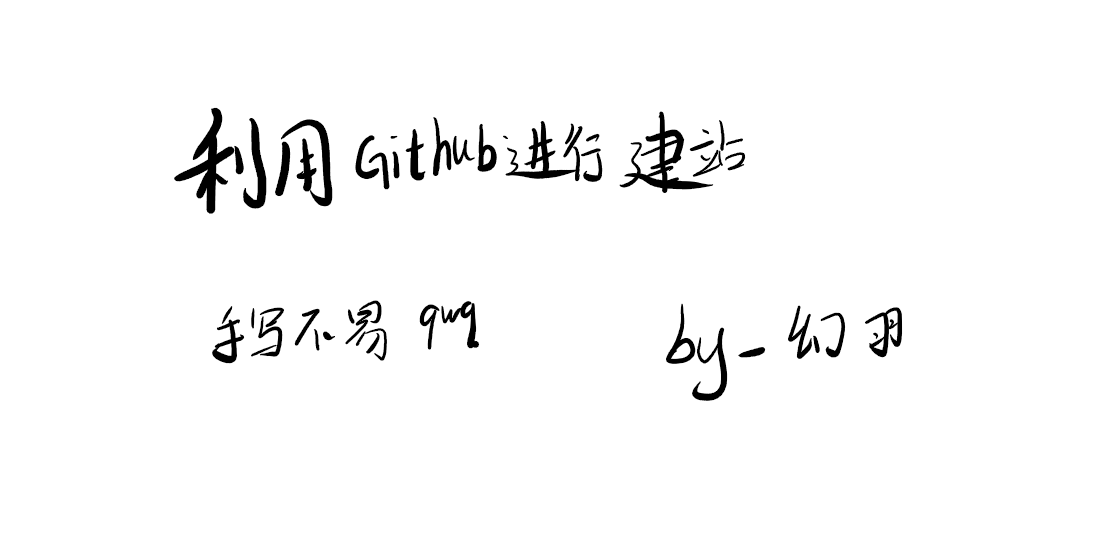 利用Github进行建站
手写不易 qwq
by_幻羽